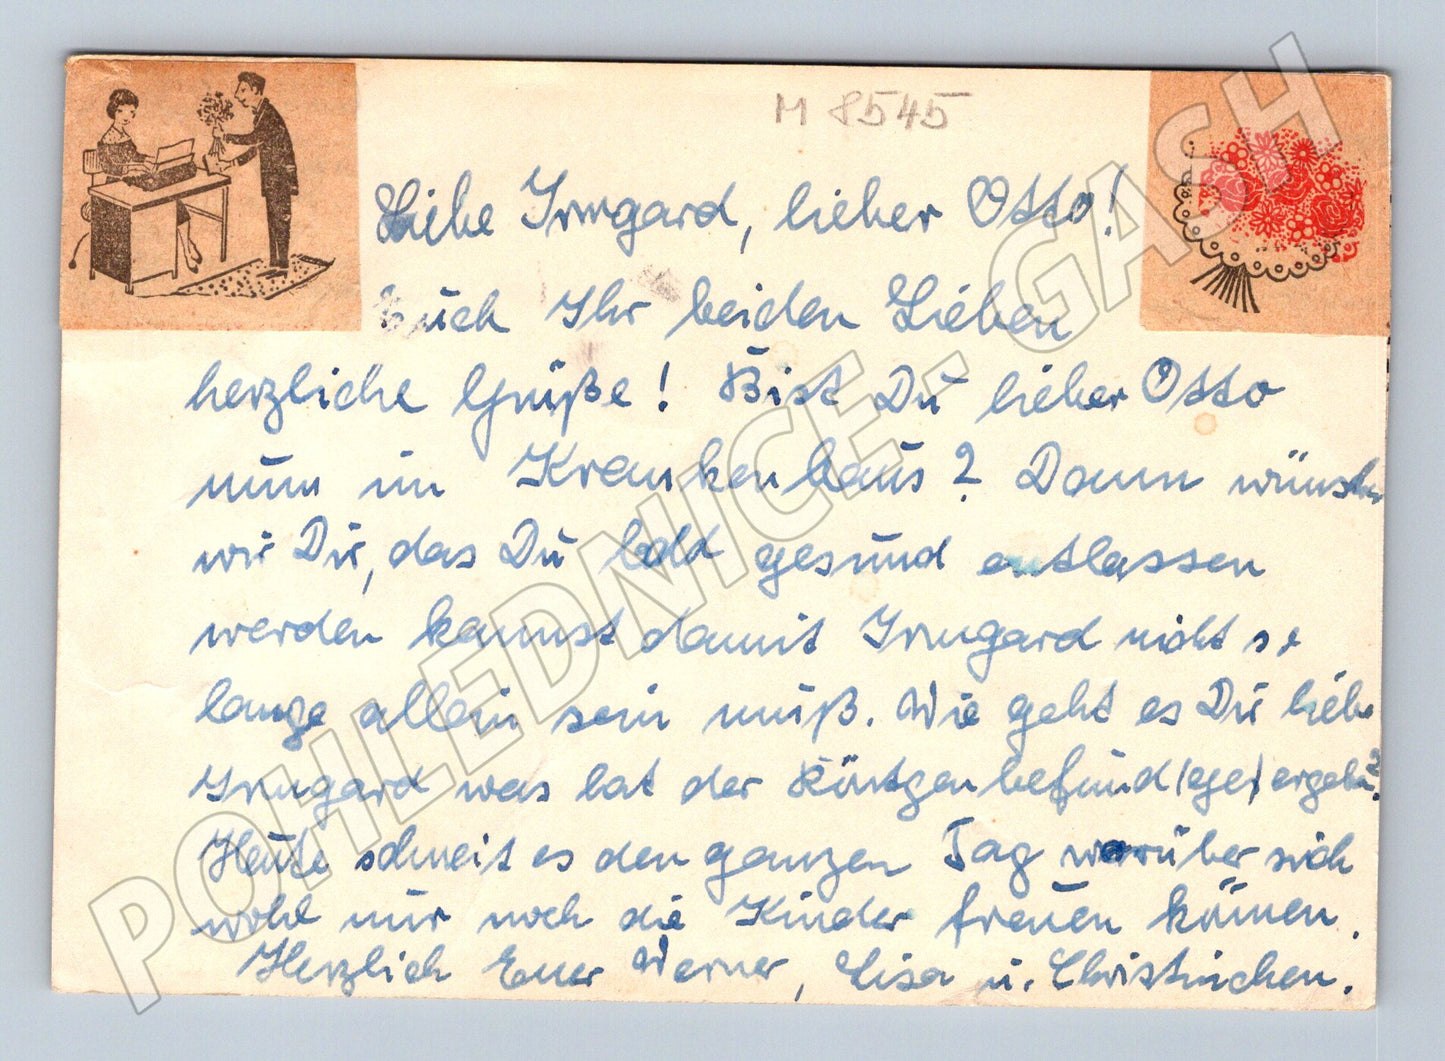 M 8545
Liebe Irmgard, lieber Otto!
Euch Ihr beiden Lieben
herzliche Grüße! Bist Du lieber Otto
nun im Krankenhaus? Dann wünschen
wir Dir, das Du bald gesund entlassen
werden kannst damit Irmgard nicht so
lange allein sein muß. Wie geht es Dir liebe
Irmgard was hat der Röntgenbefund ergeben?
Heute schneit es den ganzen Tag worüber sich
wohl nur noch die Kinder freuen können.
Herzlich Euer Werner, Lisa u. Christinchen.
POHLEDNICE - GASH